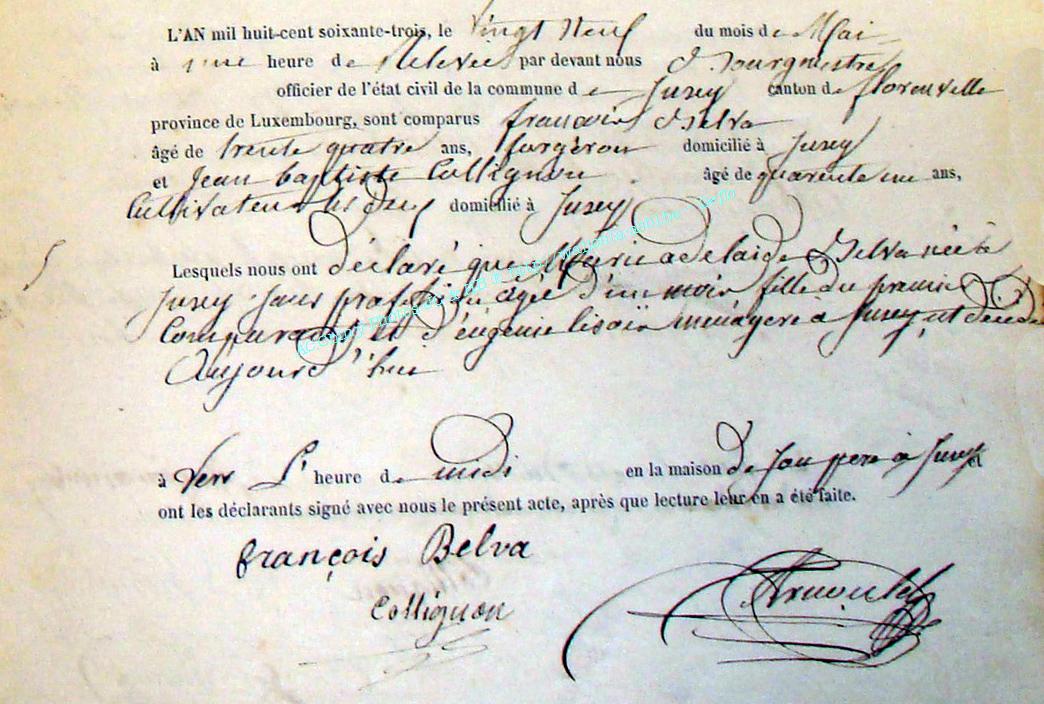 L'AN mil huit-cent soixante-trois, le vingt Neuf du mois de Mai
à une heure de Relevée par devant nous Bourgmestre
officier de l'état civil de la commune de Jusey canton de florenville
province de Luxembourg, sont comparus francois Belva
âgé de trente quatre ans, forgeron domicilié à Jusey
et Jean baptiste Collignon âgé de quarente un ans,
Cultivateur domicilié à Jusey
Lesquels nous ont déclaré que Marie adelaide Belva née à
Jusey Sans profession agée d'un mois fille du premier
Comparant et d'eugenie menagere à Jusey est décédée
Aujourd'hui
à vers L' heure de midi en la maison de Son pere à Jusey et
ont les déclarants signé avec nous le présent acte, après que lecture leur en a été faite.
François Belva
Collignon